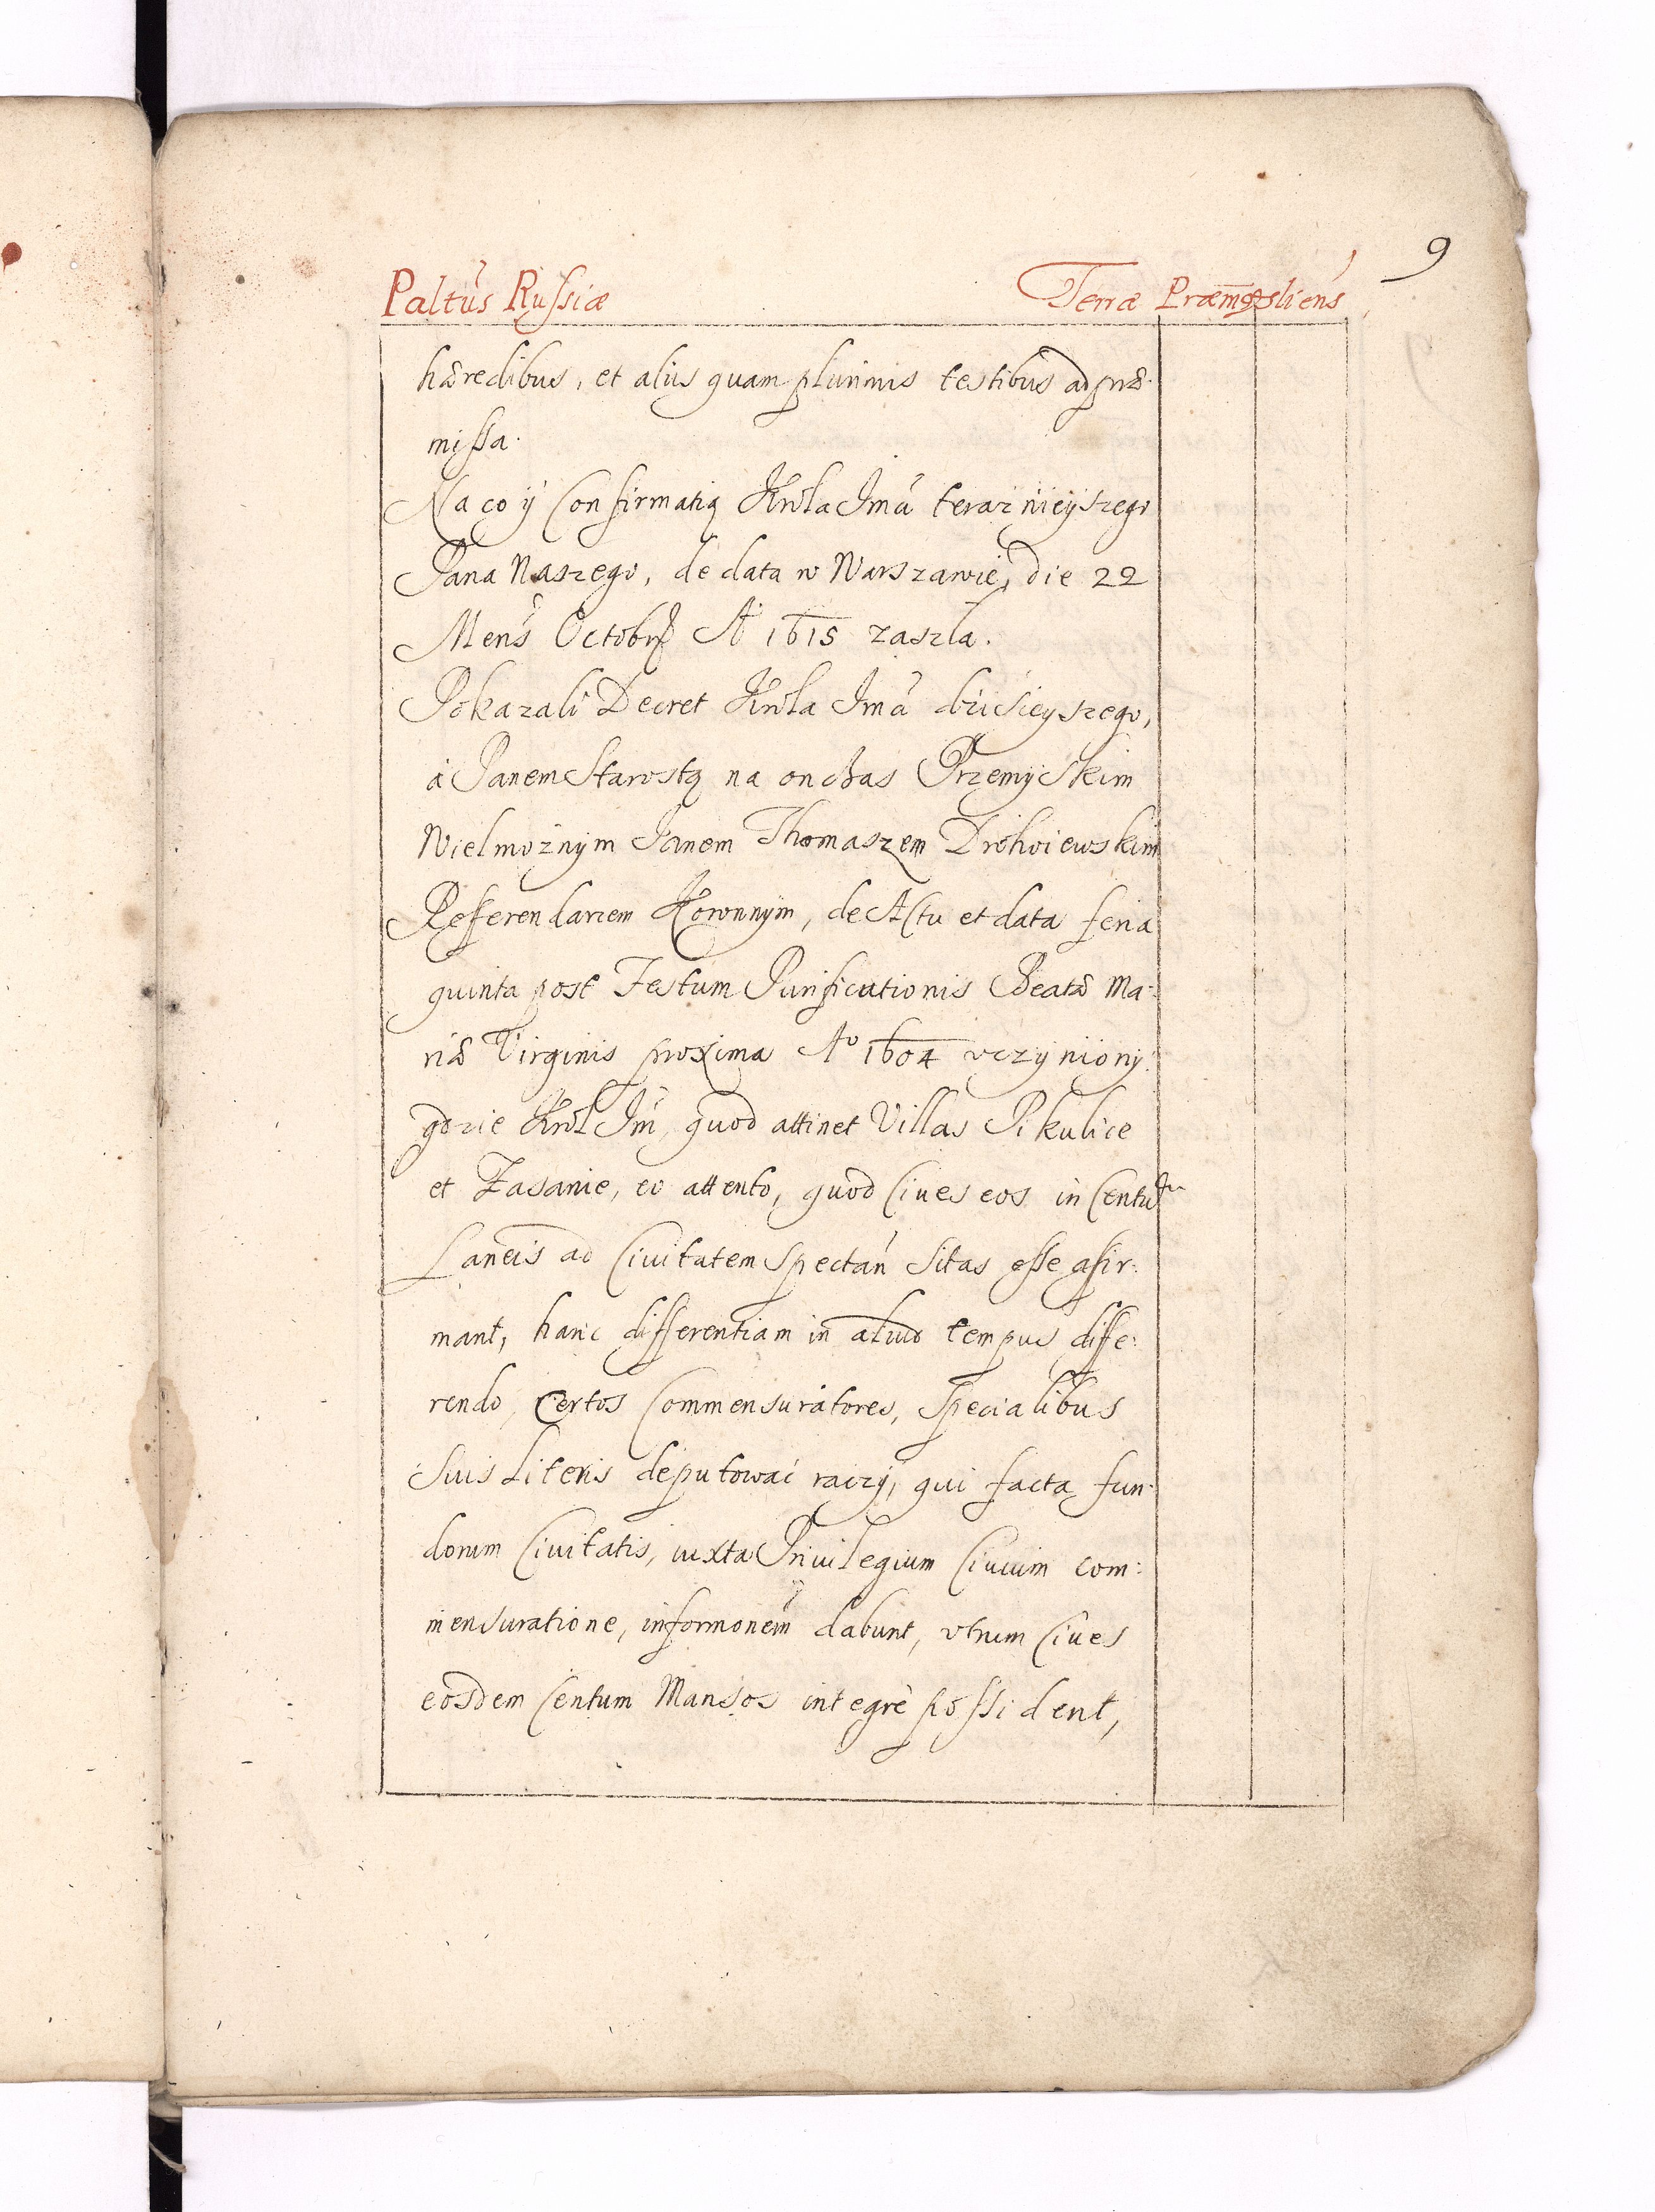 9
Paltus Russiæ Terræ Præmysliens
hæredibus, et aliis quam plurimis testibus ad præ-
missa.
Na co ÿ Confirmatią Krola Jmći teraznieÿszego
Pana Naszego, de data w Warszawie, die 22
Mens Octobris Aº 1615 zaszła.
Pokazali Decret Krola Jmći dzisieÿszego,
à Panem Starostą na onczas Przemÿskim
Wielmożnÿm Janem Thomaszem Drohoiewskim
Refferendarzem Koronnÿm, de Actu et data feria
quinta post Festum Purificationis Beatæ Ma-
riæ Virginis proxima Aº 1604 vczÿnionÿ
gdzie Krol Jm, quod attinet Villas Pikulice
et Zasanie, eo attento, quod Ciues eos in Centum
Laneis ad Ciuitatem spectan sitas esse affir-
mant, hanc differentiam in aliud tempus diffe-
rendo, Certos Commensuratores, Specialibus
Suis Literis deputować raczÿ, qui facta fun-
dorum Ciuitatis, iuxta Priuilegium Ciuium com-
mensuratione, informonem dabunt, vtrum Ciues
eosdem Centum Mansos integrè possident,